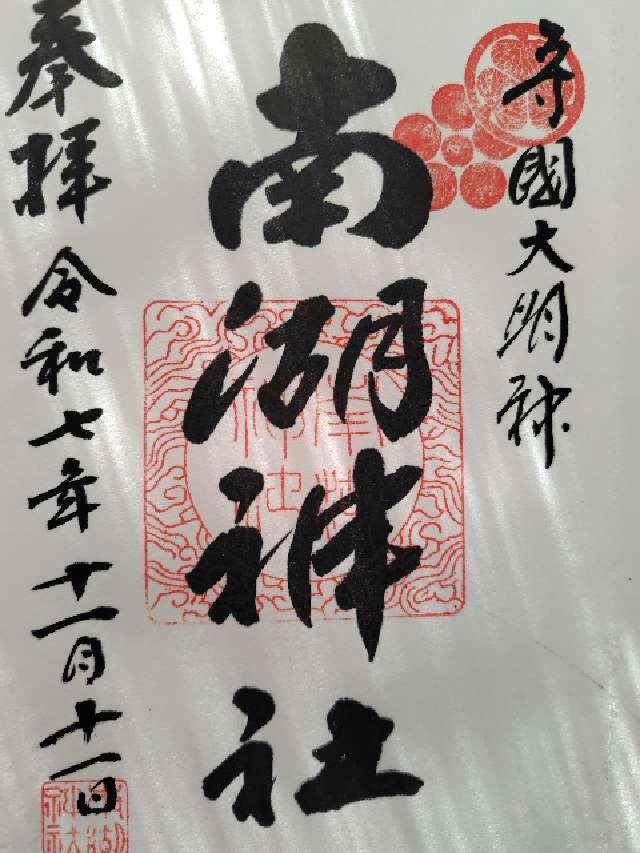 守國大明神
南湖神社
奉拝 令和七年十一月十一日
南湖神社